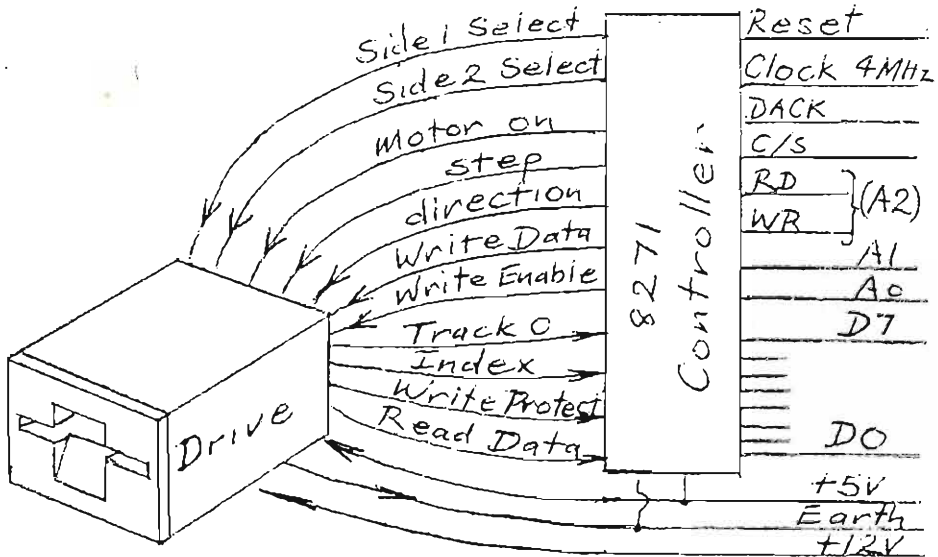 Side 1 Select
Side 2 Select
motor on
step
direction
Write Data
Write Enable
Track 0
Index
Write Protect
Read Data
Drive
8271
Controller
Reset
Clock 4MHz
DACK
C/S
RD
WR
}(A2)
A1
A0
D7
D0
+5V
Earth
+12V